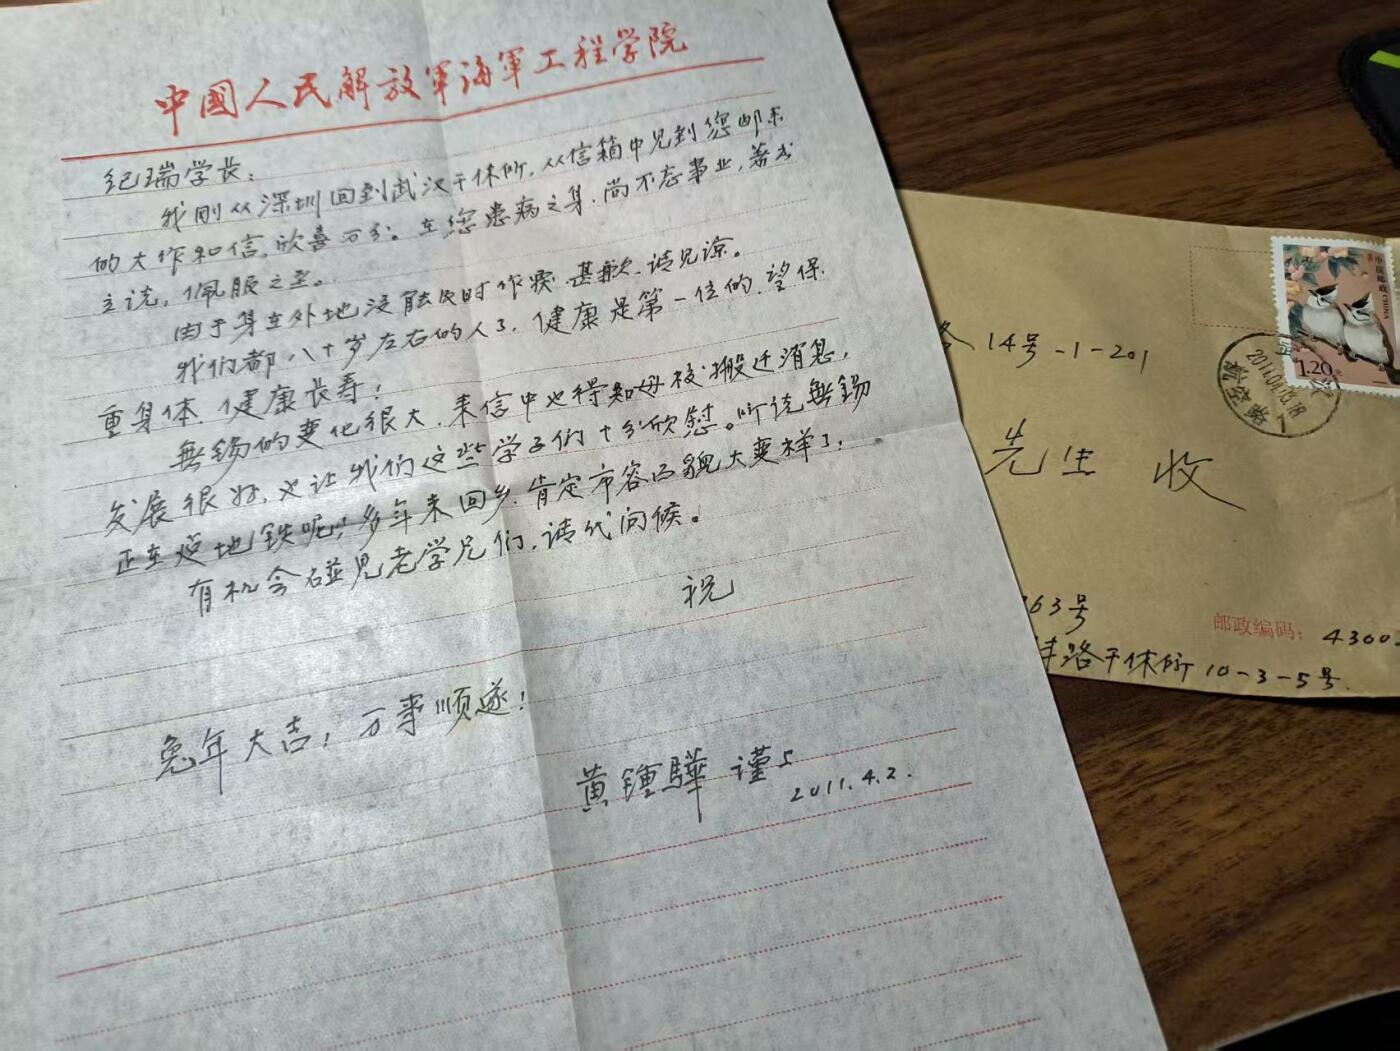 中國人民解放軍海軍工程学院
纪瑞学长：
我刚从深圳回到武汉干休所，从信箱中见到您邮来
的大作和信，欣喜万分。在您患病之身，尚不忘事业，著书
立说，佩服之至。
由于身在外地没能及时作复，甚歉，请见谅。
我们都八十岁左右的人了，健康是第一位的，望保
重身体，健康长寿！
無锡的变化很大，来信中也得知母校搬迁消息，
发展很好，也让我们这些学子们十分欣慰。听说無锡
正在造地铁呢！多年未回乡，肯定市容面貌大变样了。
有机会碰见老学兄们，请代问候。
祝
兔年大吉！万事顺遂！
黄鍾驊 谨上
2011.4.2.
中国邮政
CHINA
1.20元
2011.04.13.18
14号-1-201
先生 收
63号
邮政编码：4300
路干休所10-3-5号